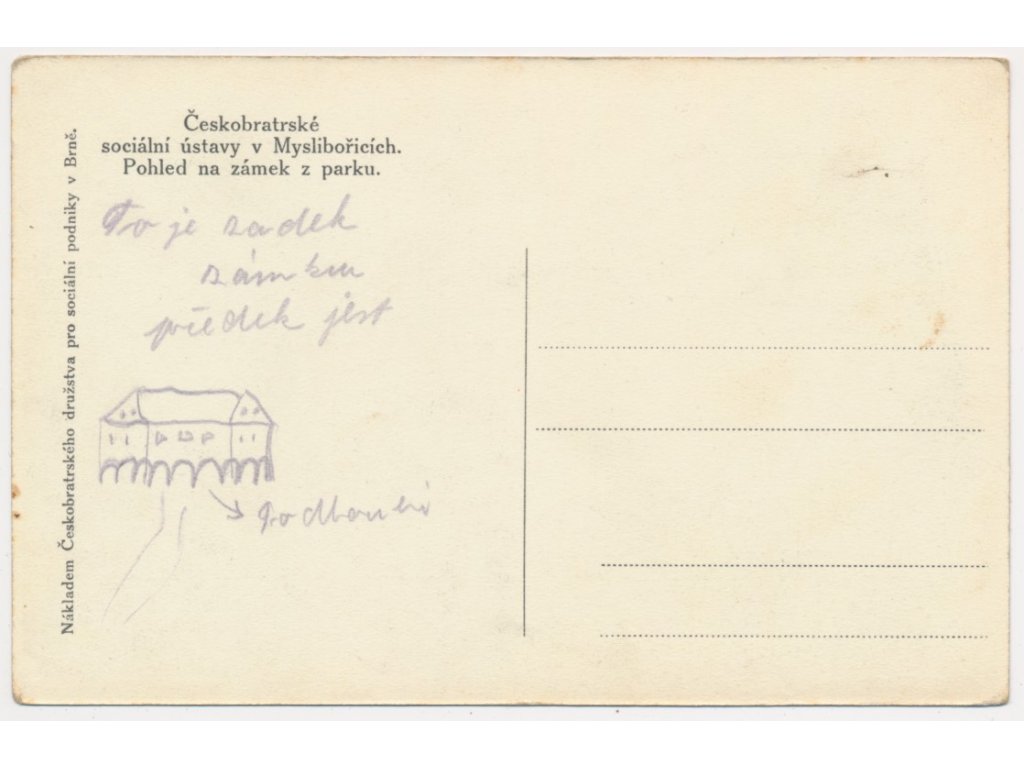 Českobratrské
sociální ústavy v Myslibořicích.
Pohled na zámek z parku.
To je zadek
zámku
předek jest
Podloubí
Nákladem Českobratrského družstva pro sociální podniky v Brně.